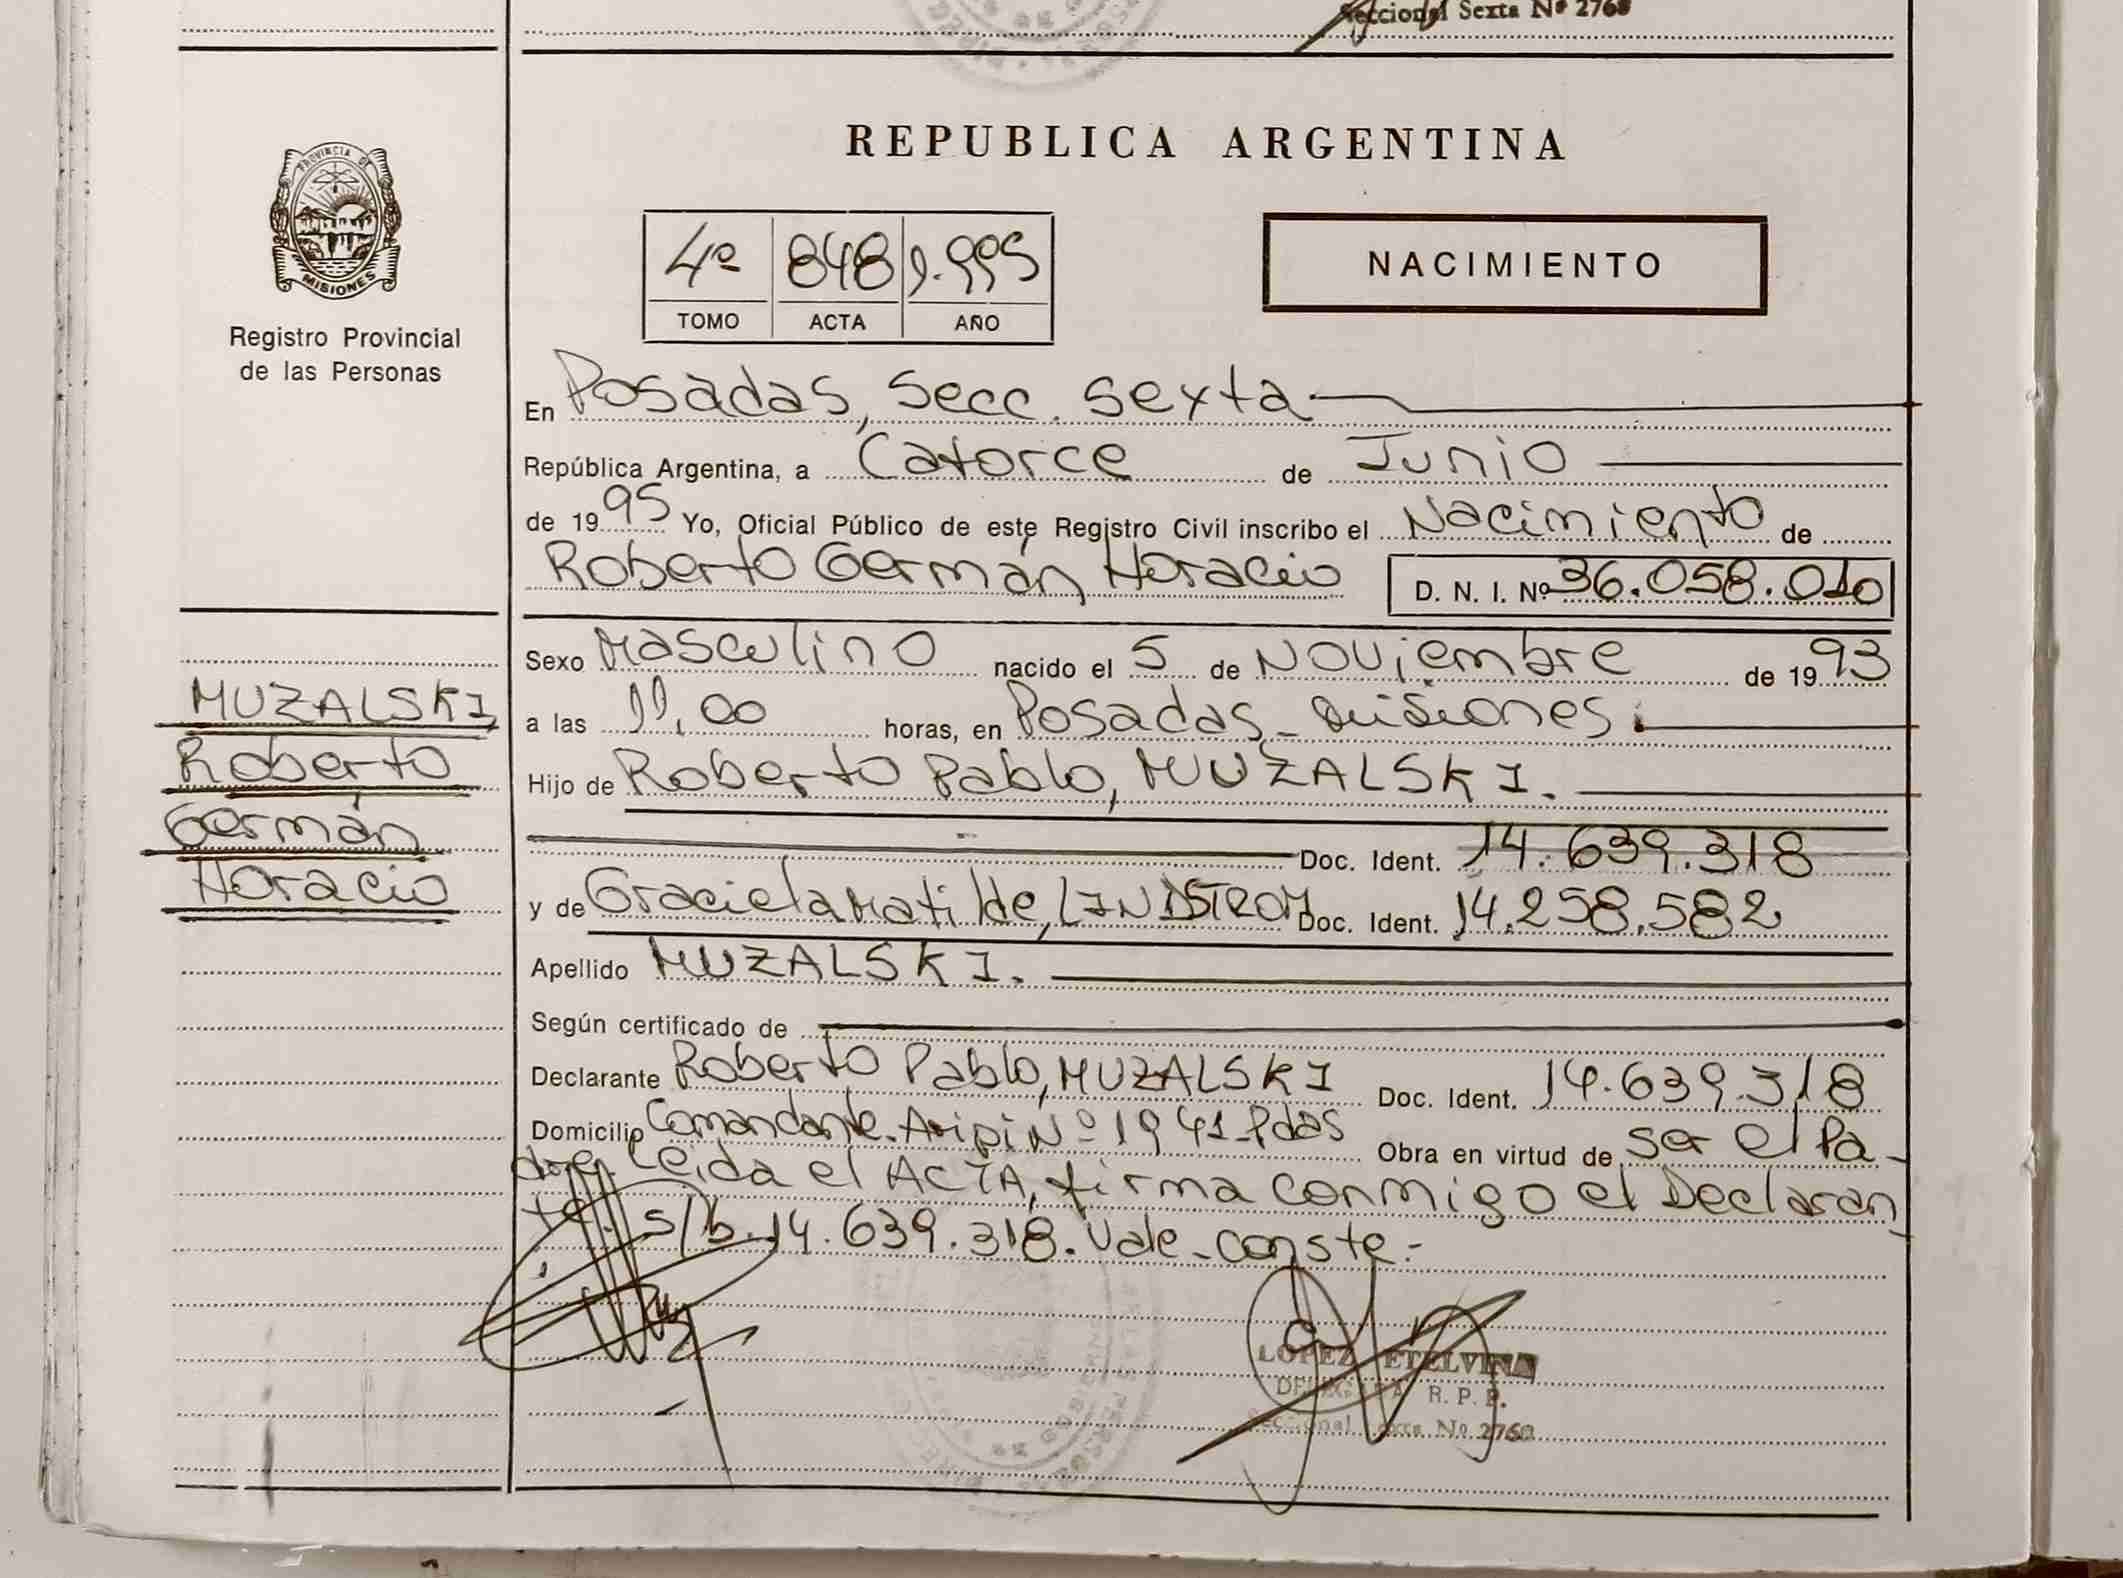 Seccional Sexta Nº 2768
REPUBLICA ARGENTINA
PROVINCIA DE
MISIONES
Registro Provincial
de las Personas
4º 848 1.995
TOMO ACTA AÑO
NACIMIENTO
En Posadas, Secc. Sexta
República Argentina, a Catorce de Junio
de 1995 Yo, Oficial Público de este Registro Civil inscribo el Nacimiento de
Roberto Germán Horacio D. N. I. Nº 36.058.010
Sexo Masculino nacido el 5 de Noviembre de 1993
a las 11,00 horas, en Posadas - Misiones.
Hijo de Roberto Pablo, MUZALSKI.
Doc. Ident. 14.639.318
y de Graciela Matilde, LINDSTROM Doc. Ident. 14.258.582
Apellido MUZALSKI.
Según certificado de
Declarante Roberto Pablo, MUZALSKI Doc. Ident. 14.639.318
Domicilio Comandante Nº 1941 - Pdas Obra en virtud de ser el Pa-
dre. Leida el ACTA, firma conmigo el Declaran-
te. s/b. 14.639.318. Vale - conste.-
MUZALSKI
Roberto
Germán
Horacio
LOPEZ ETELVINA
DELEGADA R. P. P.
Seccional Sexta Nº 2768